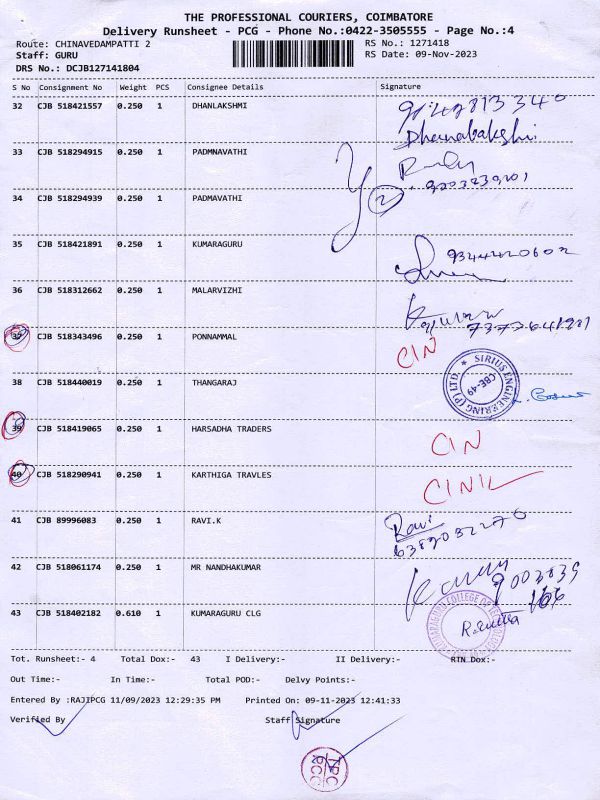 THE PROFESSIONAL COURIERS, COIMBATORE
Delivery Runsheet - PCG - Phone No.:0422-3505555 - Page No.:4
Route: CHINAVEDAMPATTI 2 RS No.: 1271418
Staff: GURU RS Date: 09-Nov-2023
DRS No.: DCJB127141804
S No Consignment No Weight PCS Consignee Details Signature
32 CJB 518421557 0.250 1 DHANLAKSHMI
33 CJB 518294915 0.250 1 PADMNAVATHI
34 CJB 518294939 0.250 1 PADMAVATHI 2
35 CJB 518421891 0.250 1 KUMARAGURU 9344420602
36 CJB 518312662 0.250 1 MALARVIZHI
37 CJB 518343496 0.250 1 PONNAMMAL CIN
38 CJB 518440019 0.250 1 THANGARAJ SIRIUS ENGINEERING (P) LTD. CBE-49
39 CJB 518419065 0.250 1 HARSADHA TRADERS CIN
40 CJB 518290941 0.250 1 KARTHIGA TRAVLES
41 CJB 89996083 0.250 1 RAVI.K Ravi
42 CJB 518061174 0.250 1 MR NANDHAKUMAR
43 CJB 518402182 0.610 1 KUMARAGURU CLG
Tot. Runsheet:- 4 Total Dox:- 43 I Delivery:- II Delivery:- RTN Dox:-
Out Time:- In Time:- Total POD:- Delvy Points:-
Entered By :RAJIPCG 11/09/2023 12:29:35 PM Printed On: 09-11-2023 12:41:33
Verified By Staff Signature